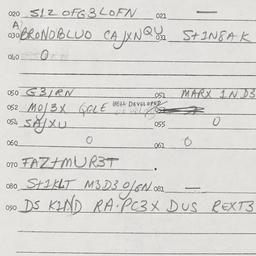 020 S12 OFG3LOFN 021 —
A
030 BRONDBLUO CAJXNQU 031 S+1N8AK
040 O
050 G31RN 051 MARX 1ND3
052 MOJ3X QGLE WELL DEVELOPED
054 SAJXU 055 O
060 O 061 O
070 FAZ+MUR3T.
080 S+1KLT M3D3OJ6N 081 —
090 DS K1ND RA.PC3X DUS REXT3